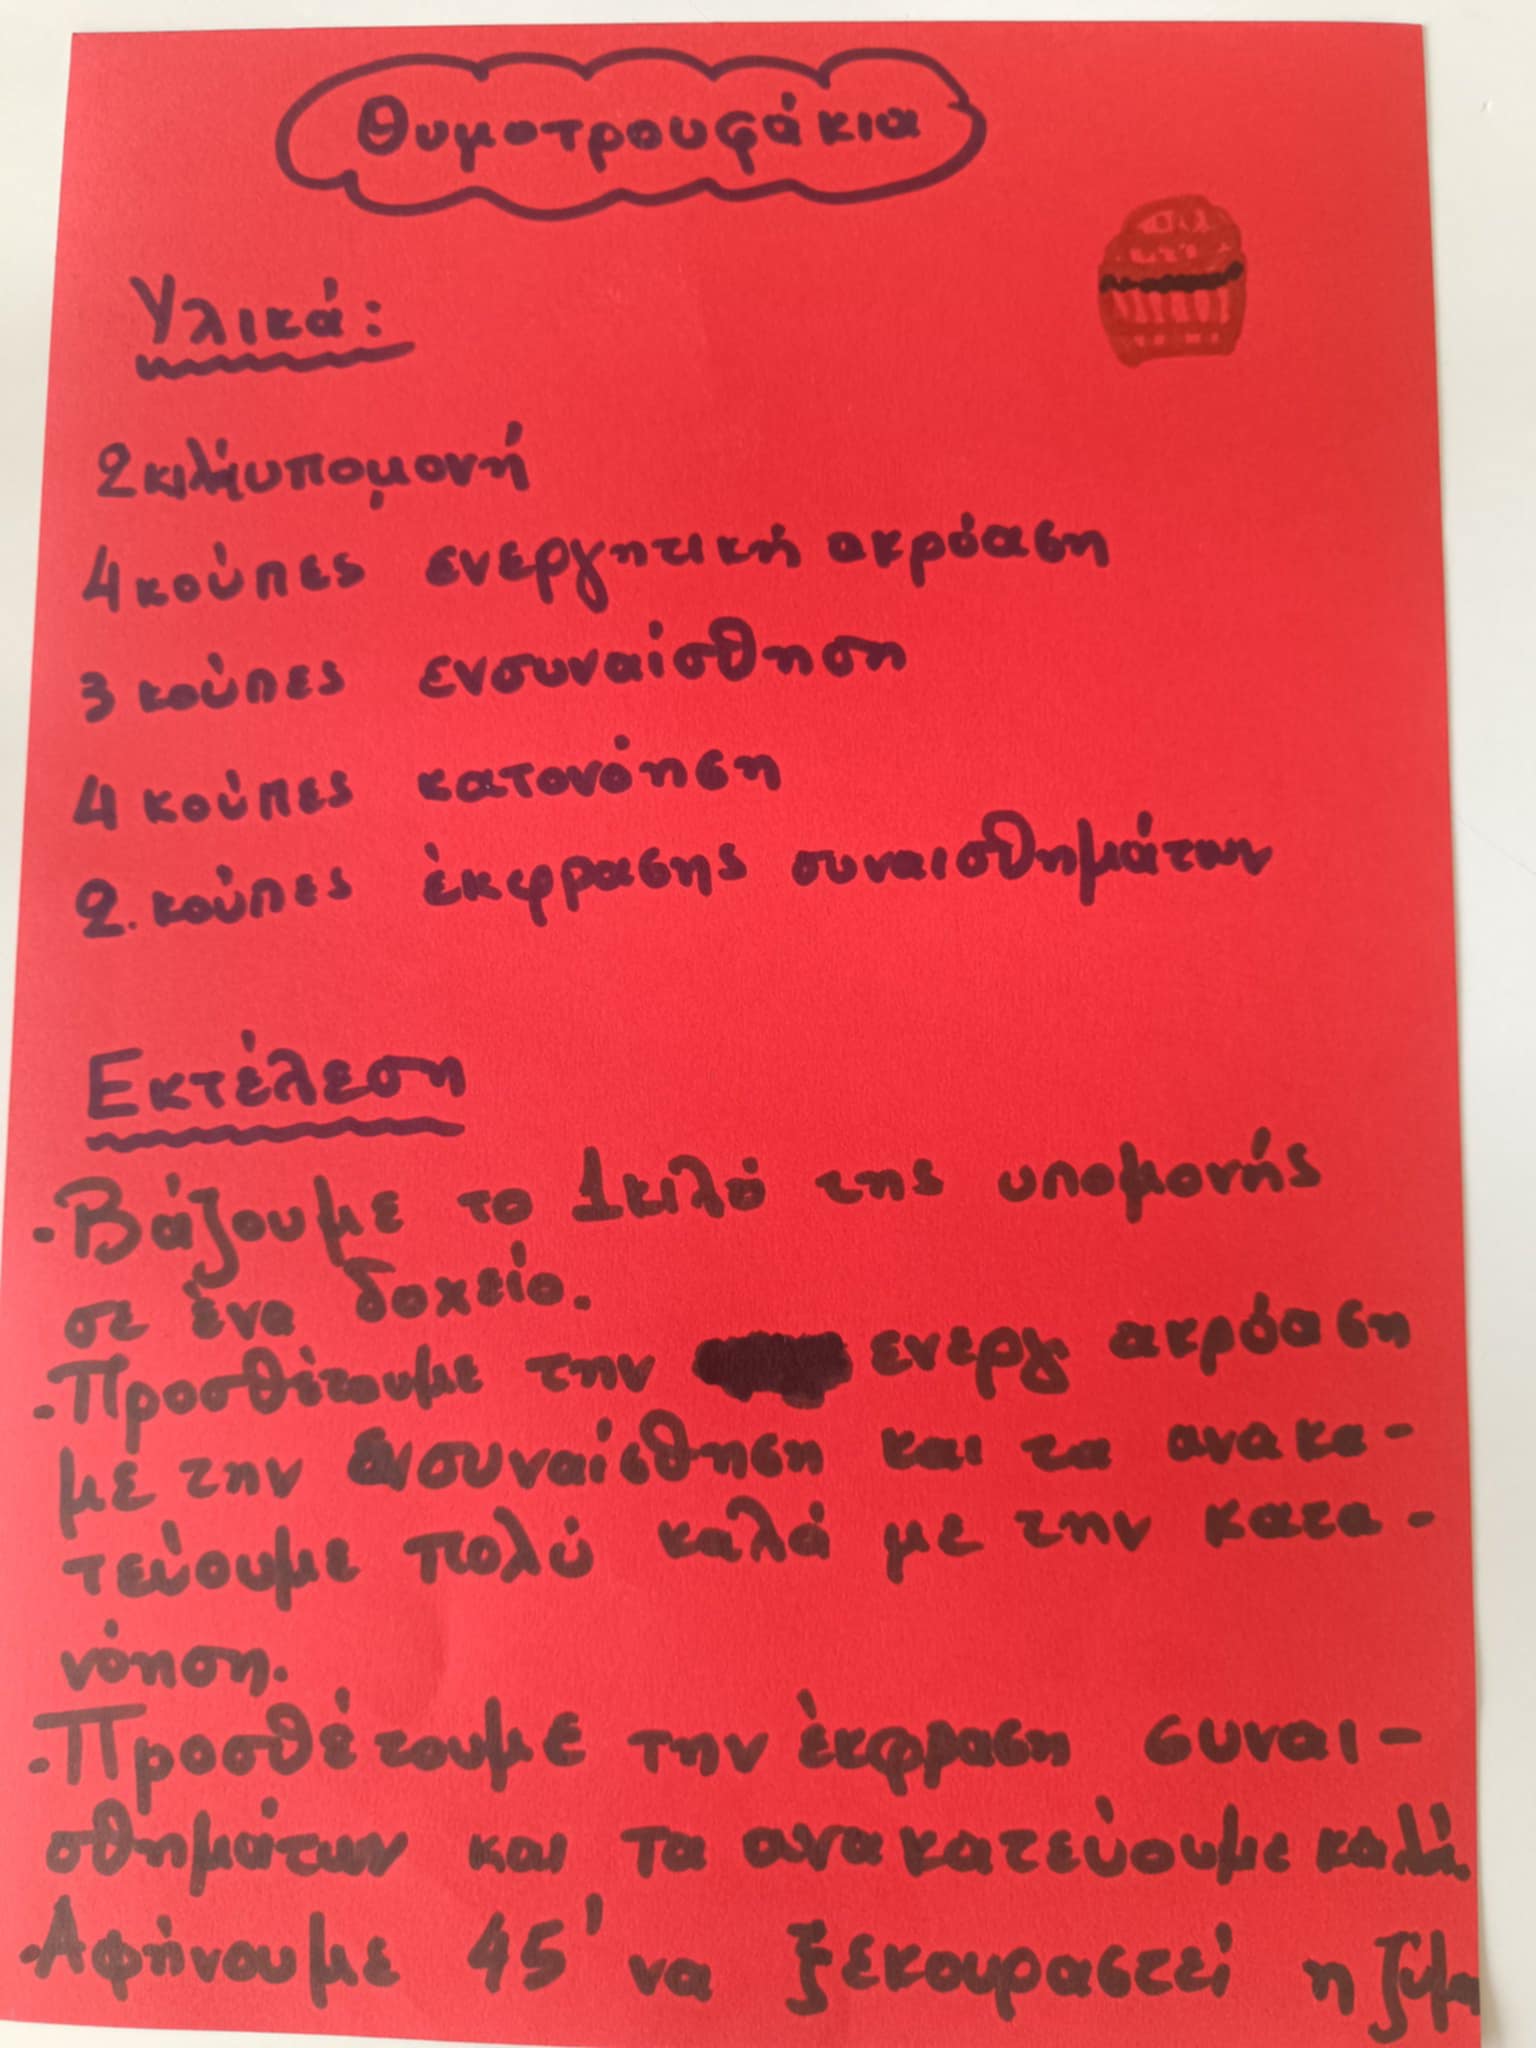 Θυμοτρουφάκια
Υλικά:
2 κιλά υπομονή
4 κούπες ενεργητική ακρόαση
3 κούπες ενσυναίσθηση
4 κούπες κατονόηση
2. κούπες έκφρασης συναισθημάτων
Εκτέλεση
· Βάζουμε το 1 κιλό της υπομονής
σε ένα δοχείο.
· Προσθέτουμε την ενεργ. ακρόαση
με την ενσυναίσθηση και τα ανακα-
τεύουμε πολύ καλά με την κατα-
νόηση.
· Προσθέτουμε την έκφραση συναι-
σθημάτων και τα ανακατεύουμε καλά.
· Αφήνουμε 45' να ξεκουραστεί η ζύμη